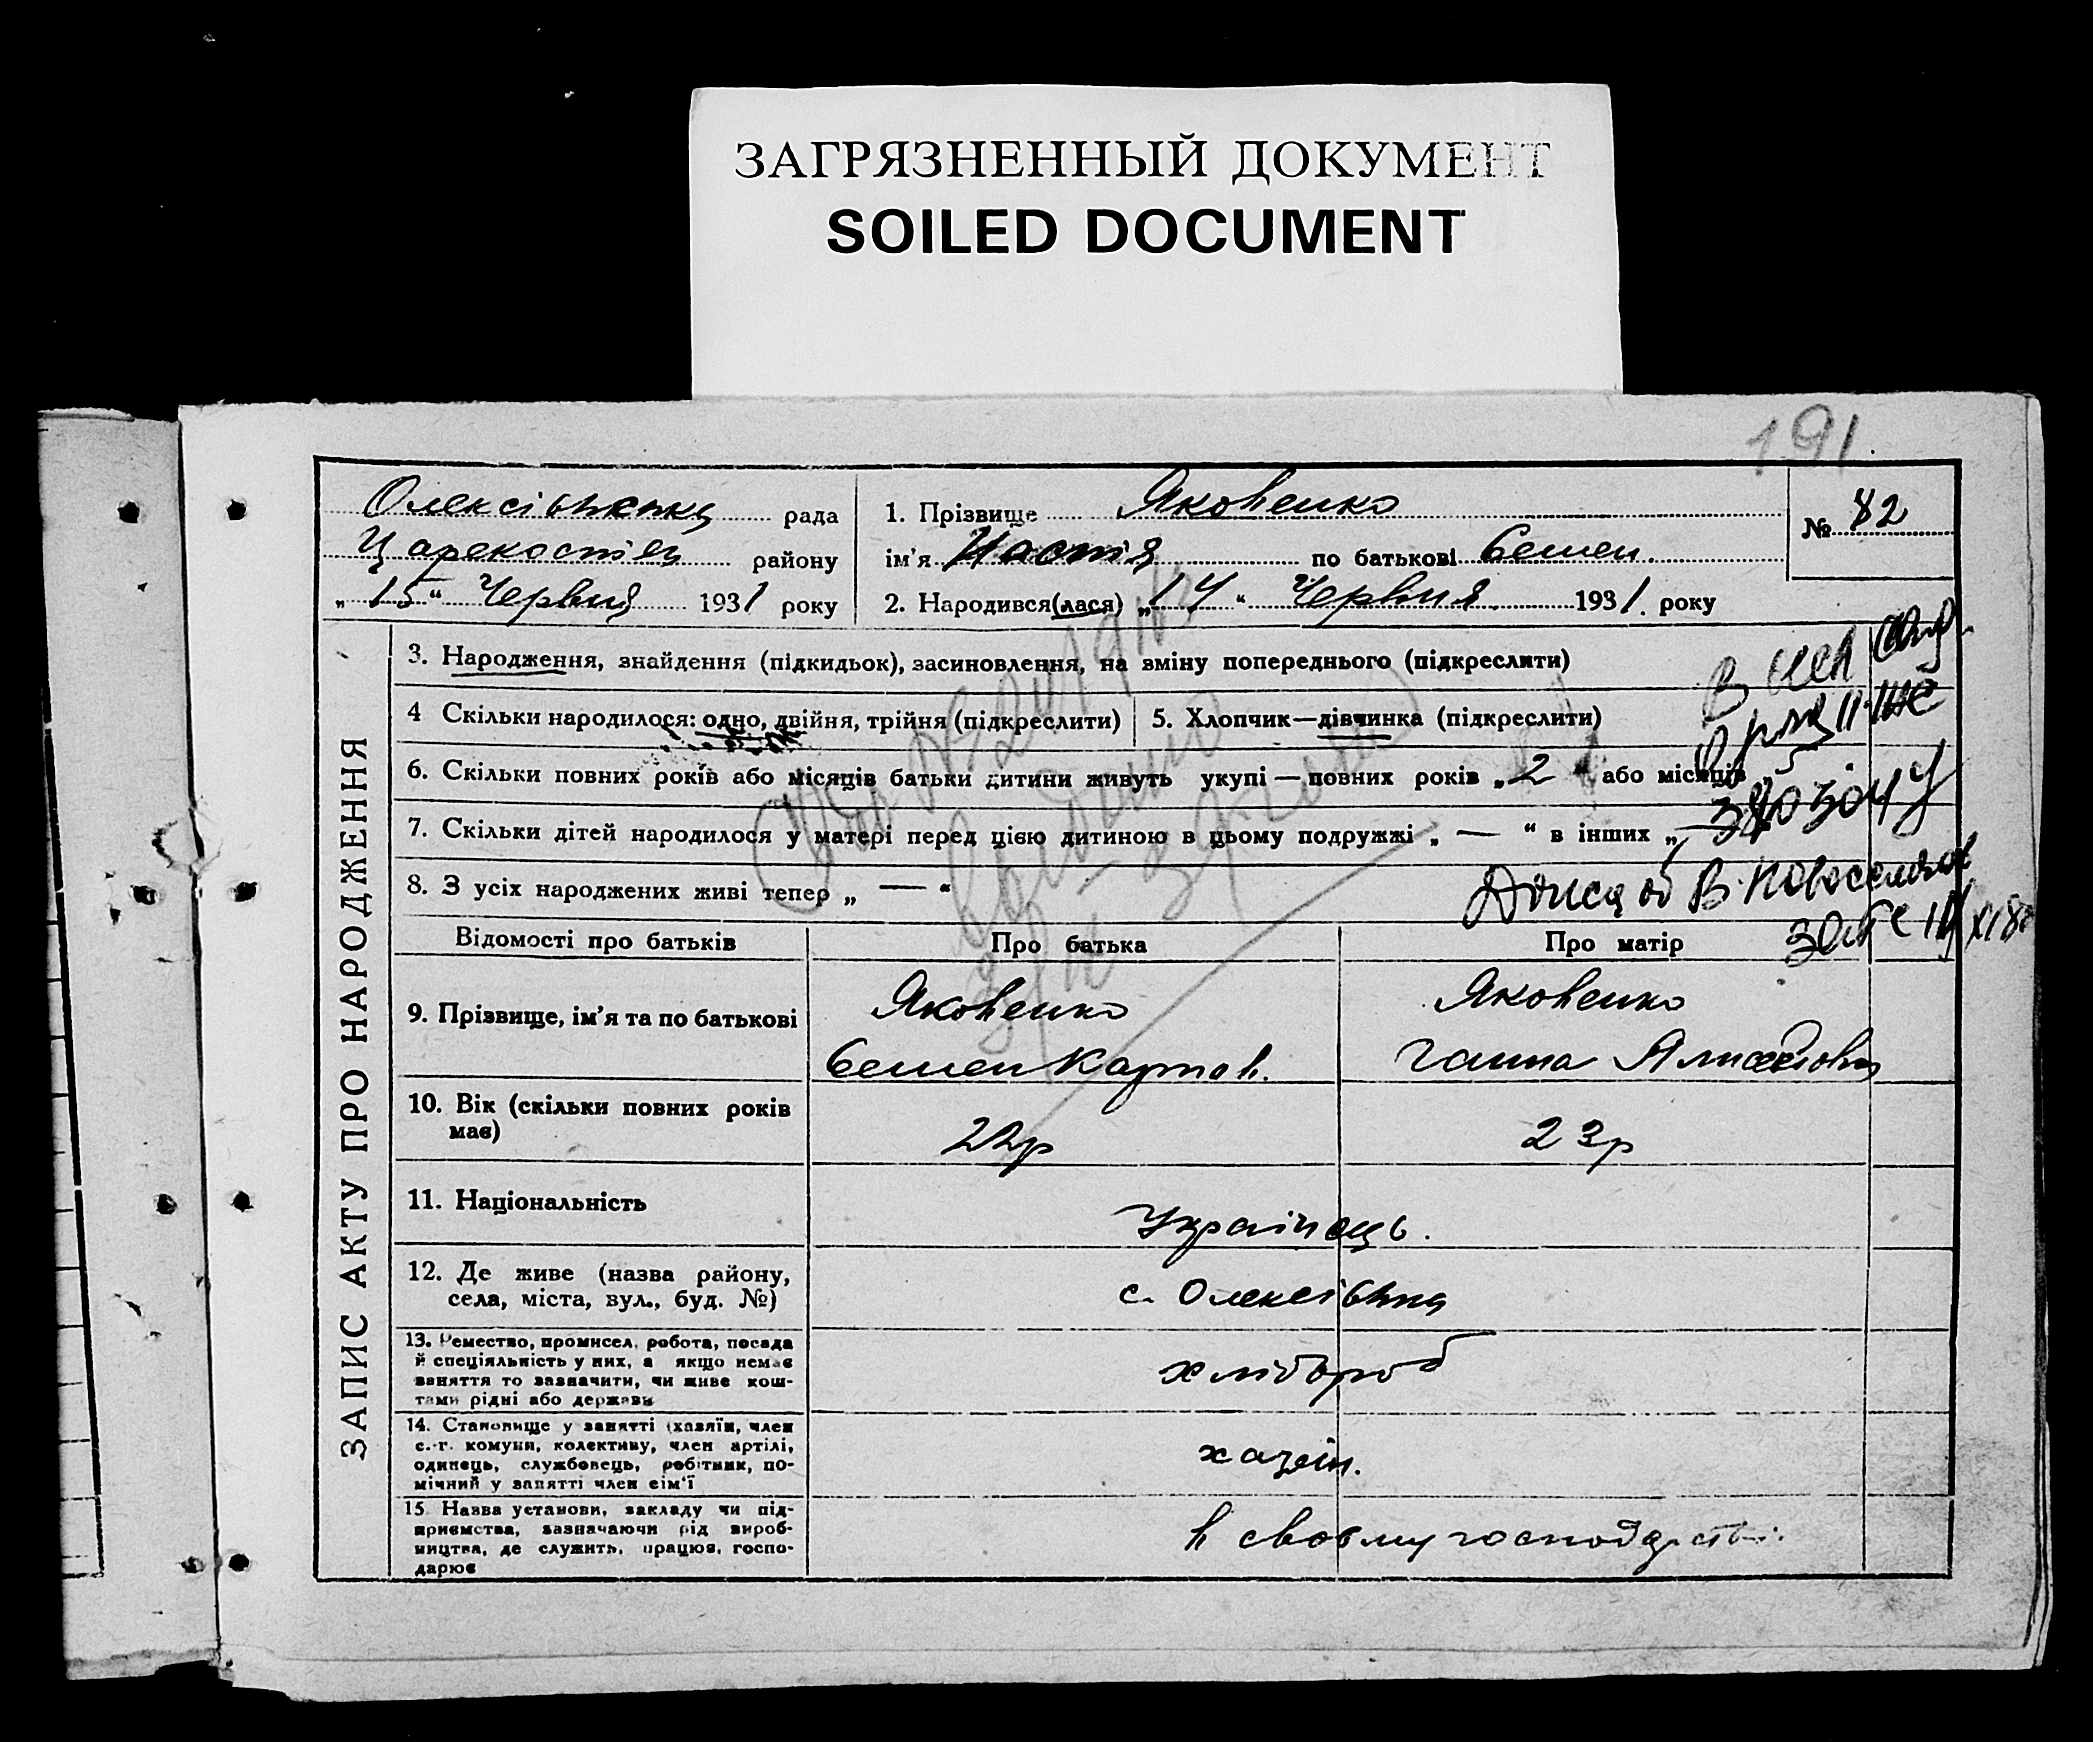 ЗАГРЯЗНЕННЫЙ ДОКУМЕНТ
SOILED DOCUMENT
191.
ЗАПИС АКТУ ПРО НАРОДЖЕННЯ
рада
району
„15“ Червня 1931 року
1. Прізвище Яковенко
ім'я Настя по батькові Семен.
2. Народився(лася) „14“ Червня 1931. року
№ 82
3. Народження, знайдення (підкидьок), засиновлення, на зміну попереднього (підкреслити)
4 Скільки народилося: одно, двійня, трійня (підкреслити)
5. Хлопчик—дівчинка (підкреслити)
6. Скільки повних років або місяців батьки дитини живуть укупі—повних років „2“ або місяців „
7. Скільки дітей народилося у матері перед цією дитиною в цьому подружжі „ — “ в інших „
8. З усіх народжених живі тепер „ — “
Відомості про батьків
Про батька
Про матір
9. Прізвище, ім'я та по батькові
Яковенко
Семен Карпов.
Яковенко
Ганна
10. Вік (скільки повних років
має)
22р
23р
11. Національність
Українець.
12. Де живе (назва району,
села, міста, вул., буд. №)
с. Олексіївка
13. Ремество, промисел, робота, посада
й спеціяльність у них, а якщо немає
заняття то зазначити, чи живе кош-
тами рідні або держави
хлібороб
14. Становище у занятті (хазяїн, член
с.-г. комуни, колективу, член артілі,
одинець, службовець, робітник, по-
мічний у занятті член сім'ї
хазяїн.
15 Назва установи, закладу чи під-
приємства, зазначаючи рід вироб-
ництва, де служить, працює, госпо-
дарює
в своєму господарстві.